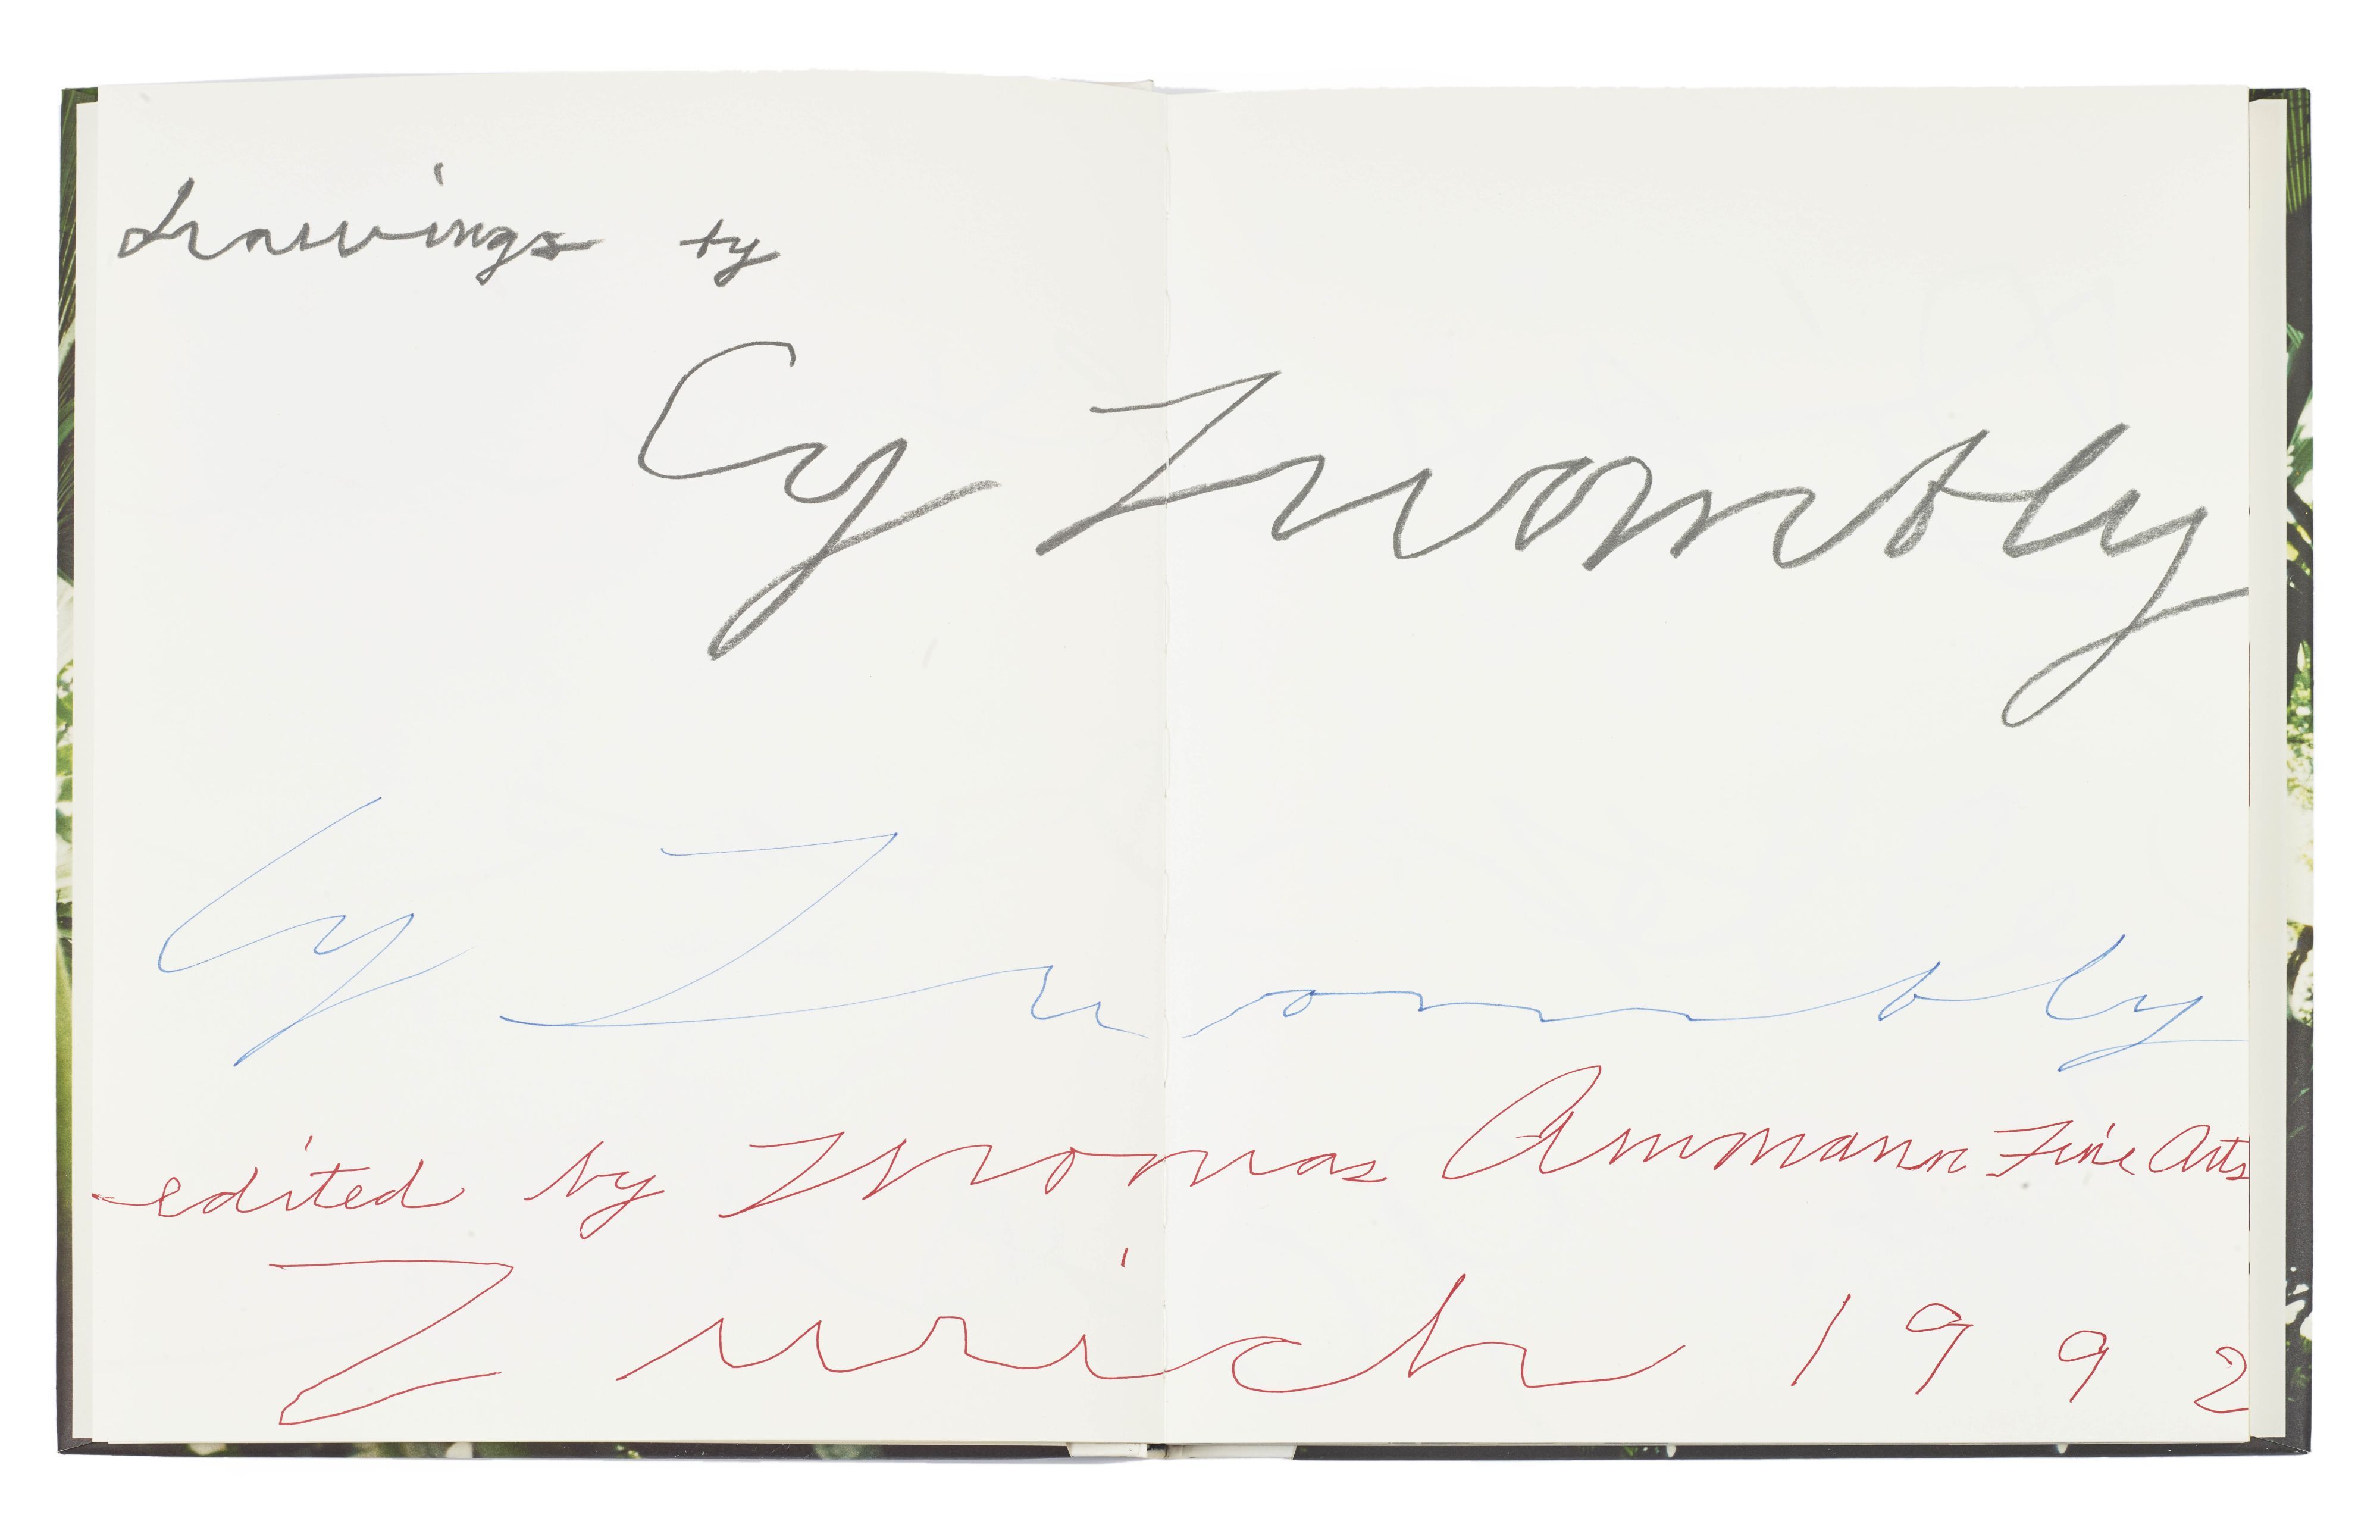 drawings by
Cy Twombly
Cy Twombly
edited by Thomas Ammann Fine Arts
Zurich 1992